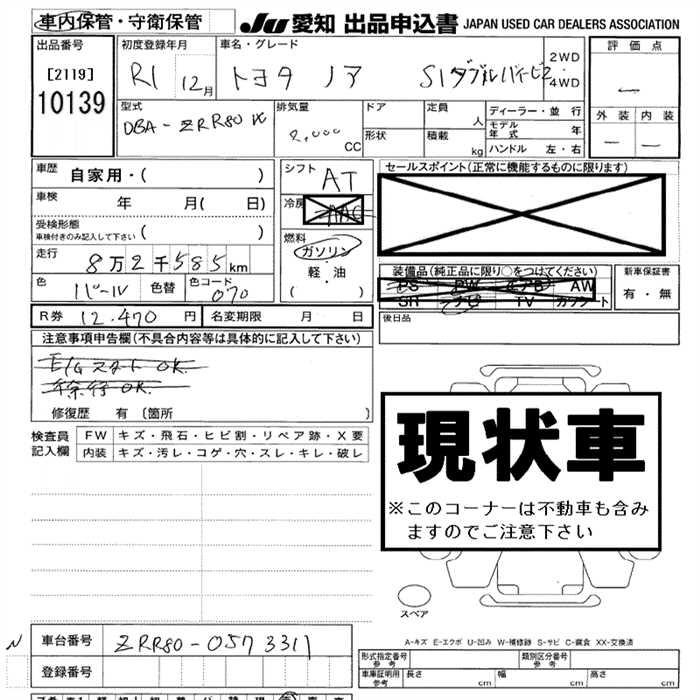 車内保管・守衛保管 JU 愛知 出品申込書 JAPAN USED CAR DEALERS ASSOCIATION
出品番号 初度登録年月 車名・グレード 2WD 評価点
[2119] R1 12月 トヨタ ノア ・
10139 4WD
型式 排気量 ドア 定員 人 ディーラー・並行 外装 内装
DBA-ZRR80 2,000 CC 形状 積載 kg モデル年式 年
ハンドル 左・右
車歴 自家用・( ) シフト AT セールスポイント(正常に機能するものに限ります)
車検 年 月( 日) 冷房 AAC
受検形態 燃料 ガソリン
車検付きのみ記入して下さい ( )
走行 8万2千585km 軽・油 装備品(純正品に限り○をつけてください) 新車保証書
色 パール 色替 色コード 070 ( ) PS PW エアB AW 有・無
SR ナビ TV カワシート
R券 12,470円 名変期限 月 日 後日品
注意事項申告欄(不具合内容等は具体的に記入して下さい)
E/GスタートOK
徐行OK
修復歴 有 〔箇所 〕
検査員 FW キズ・飛石・ヒビ割・リペア跡・X要
記入欄 内装 キズ・汚レ・コゲ・穴・スレ・キレ・破レ
現状車
※このコーナーは不動車も含み
ますのでご注意下さい
スペア
A-キズ E-エクボ U-凹み W-補修跡 S-サビ C-腐食 XX-交換済
N 車台番号 ZRR80-0573311
登録番号
形式指定番号 参考 類別区分番号 参考
車庫証明用 参考 長さ cm 幅 cm 高さ cm